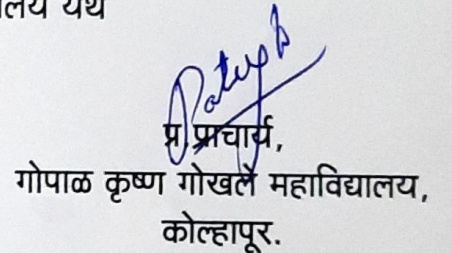 लय येथे
प्र.प्राचार्य,
गोपाळ कृष्ण गोखले महाविद्यालय,
कोल्हापूर.